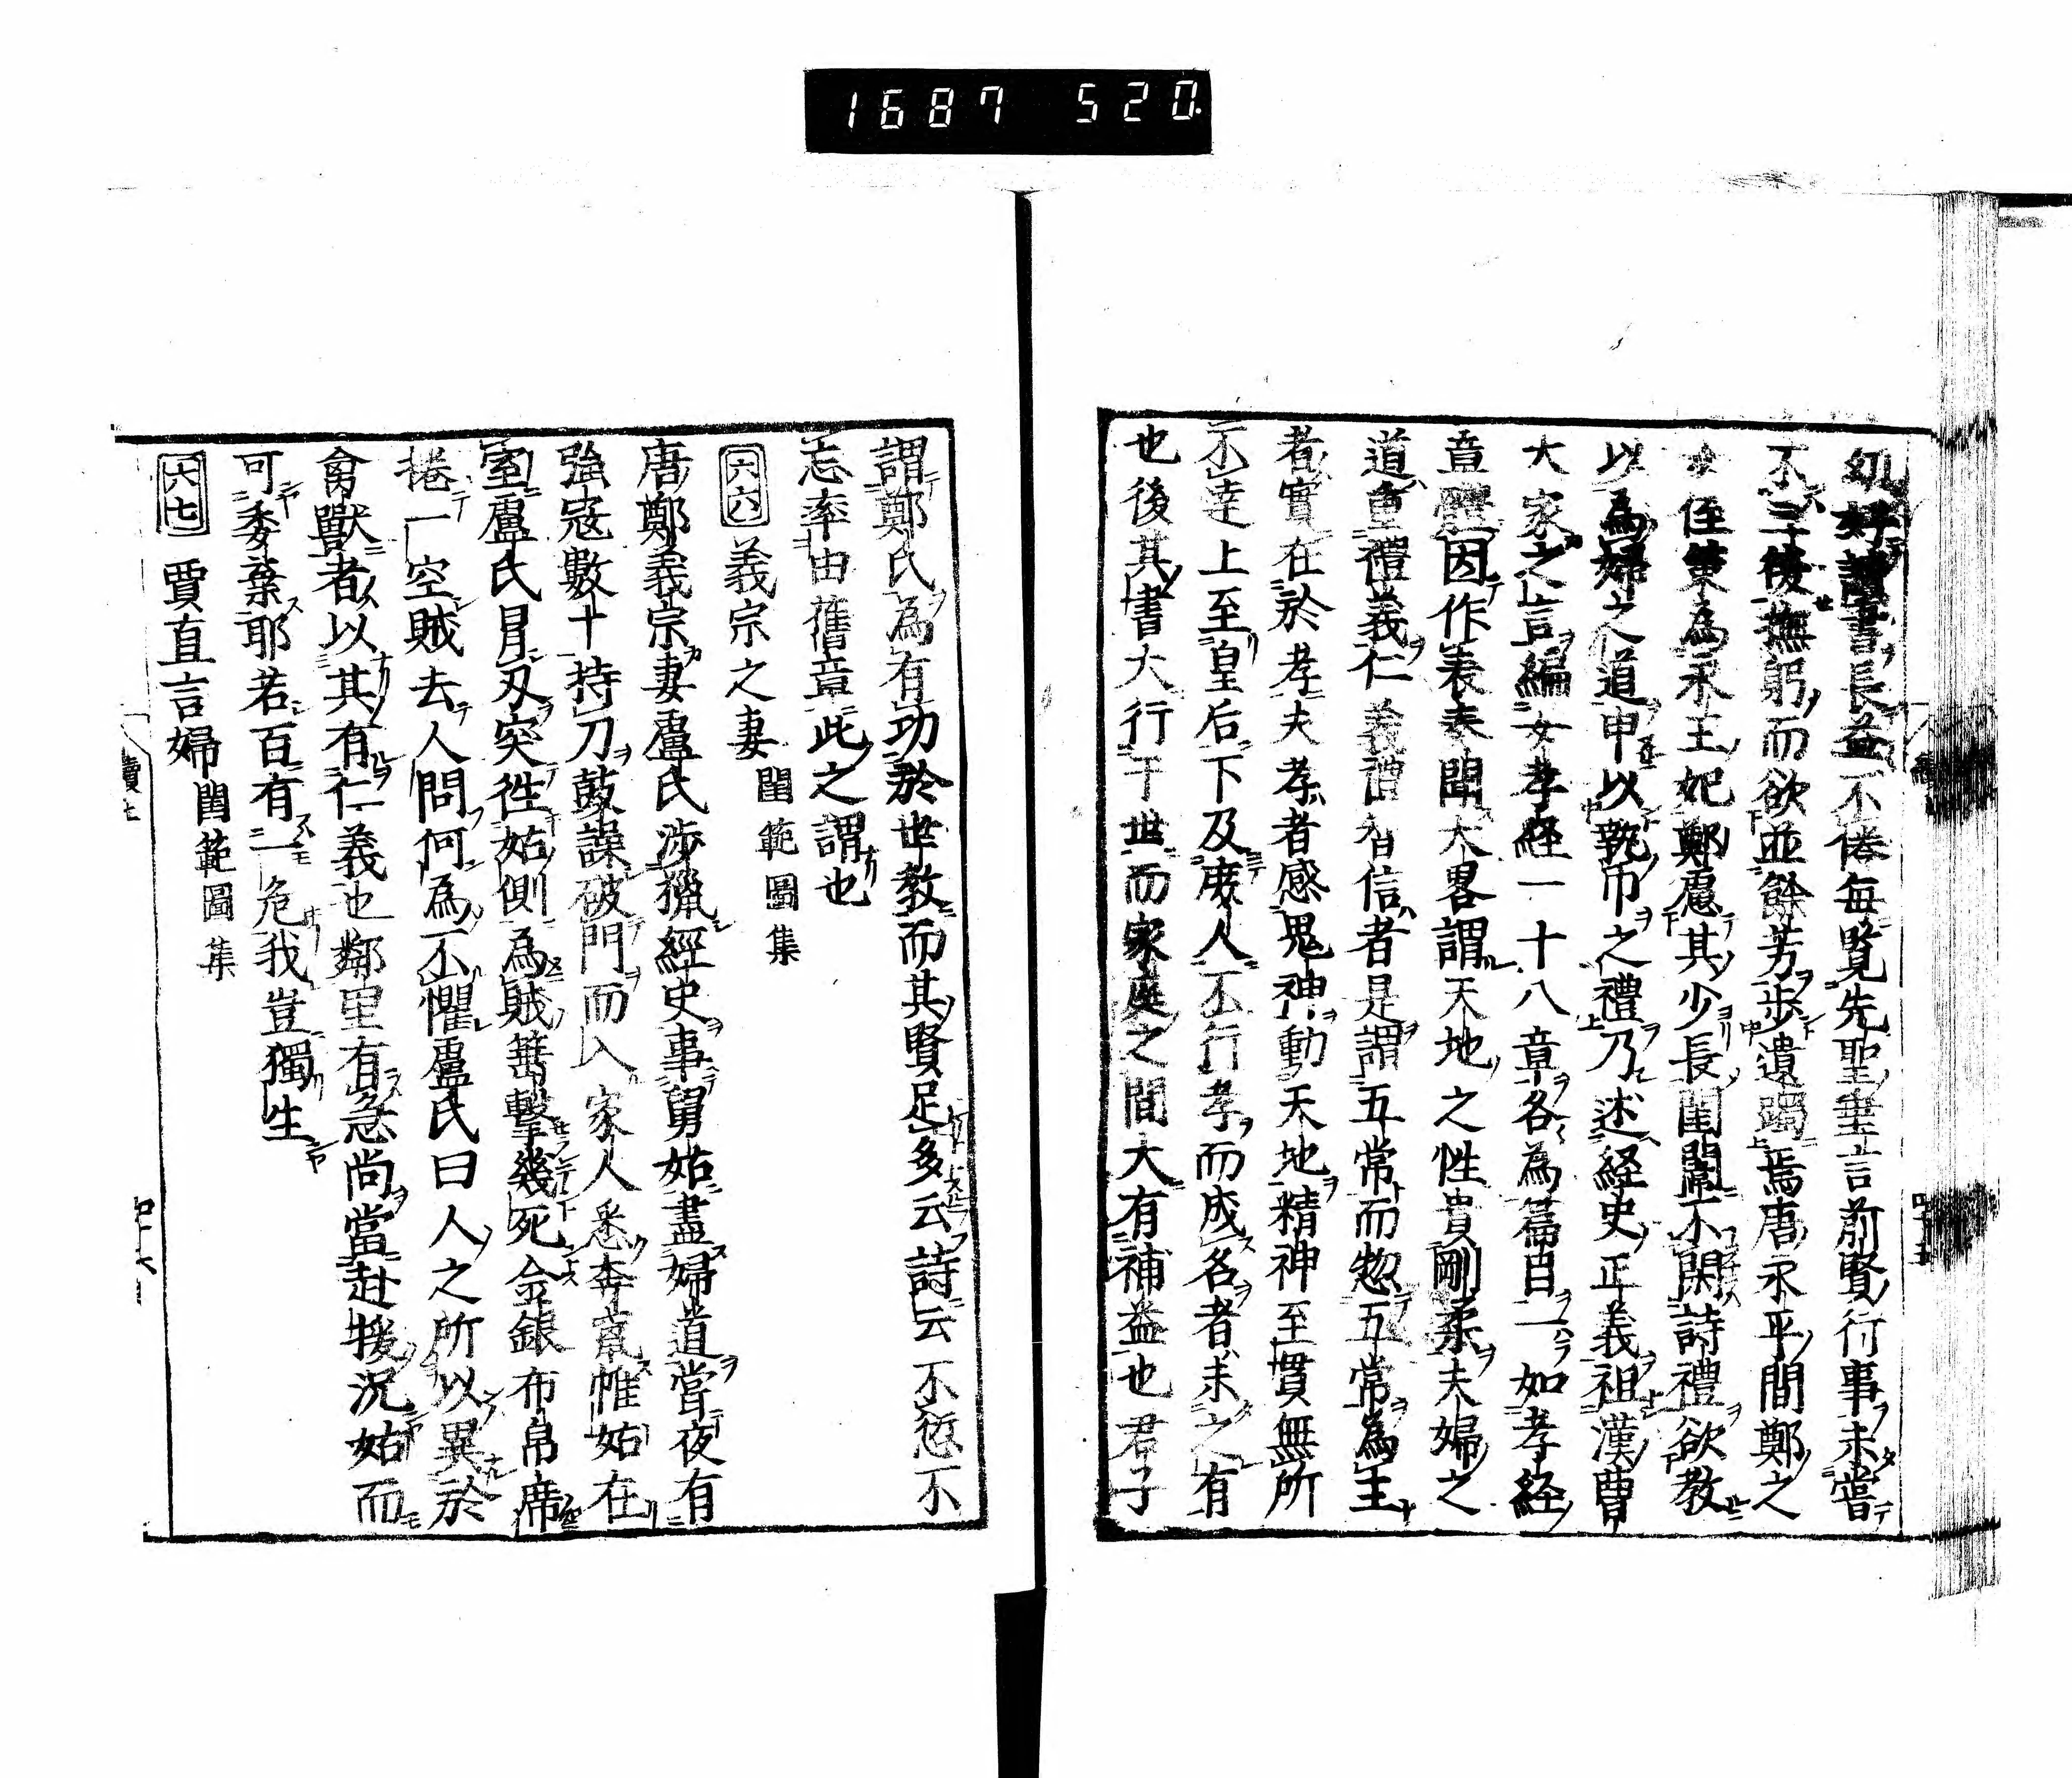 1687 520
幼好讀書長益不倦毎覧先聖垂言前賢行事未嘗
不三復撫躬而欲並餘芳歩遺躅焉唐永平間鄭之
女姪策為永王妃鄭慮其少長閨闈不閑詩禮欲教
以為婦之道申以執巾之禮乃述経史正義祖漢曹
大家之言編女孝経一十八章各為篇目一如孝経
章體因作表表聞大畧謂天地之性貴剛柔夫婦之
道重禮義仁義禮智信者是謂五常而惣五常為主
者實在於孝夫孝者感鬼神動天地精神至貫無所
不達上至皇后下及庻人不行孝而成名者未之有
也後其書大行于世而家庭之間大有補益也君子
謂鄭氏為有功於世教而其賢足多云詩云不愆不
忘率由舊章此之謂也
六六 義宗之妻 閨範圖集
唐鄭義宗妻盧氏渉獵經史事舅姑盡婦道嘗夜有
強寇數十持刀鼓譟破門而入家人悉奔竄惟姑在
室盧氏冒刃突徃姑側為賊箠擊幾死金銀布帛席
捲一空賊去人問何為不懼盧氏曰人之所以異於
禽獸者以其有仁義也鄰里有急尚當赴援況姑而
可委棄耶若百有一危我豈獨生
六七 賈直言婦 閨範圖集
四十五
四十六